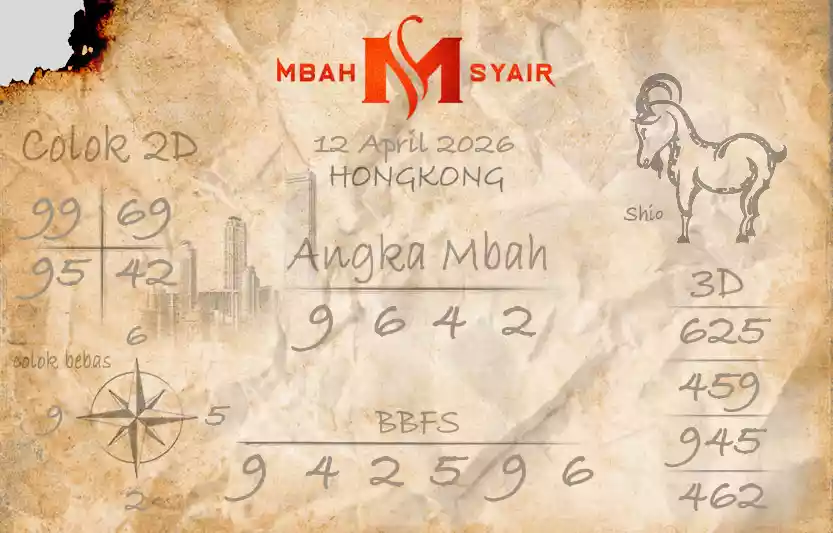 MBAH M SYAIR
12 April 2026
HONGKONG
Colok 2D
99 69
95 42
Shio
Angka Mbah
9 6 4 2
3D
625
459
945
462
colok bebas
6
9 5
2
BBFS
9 4 2 5 9 6